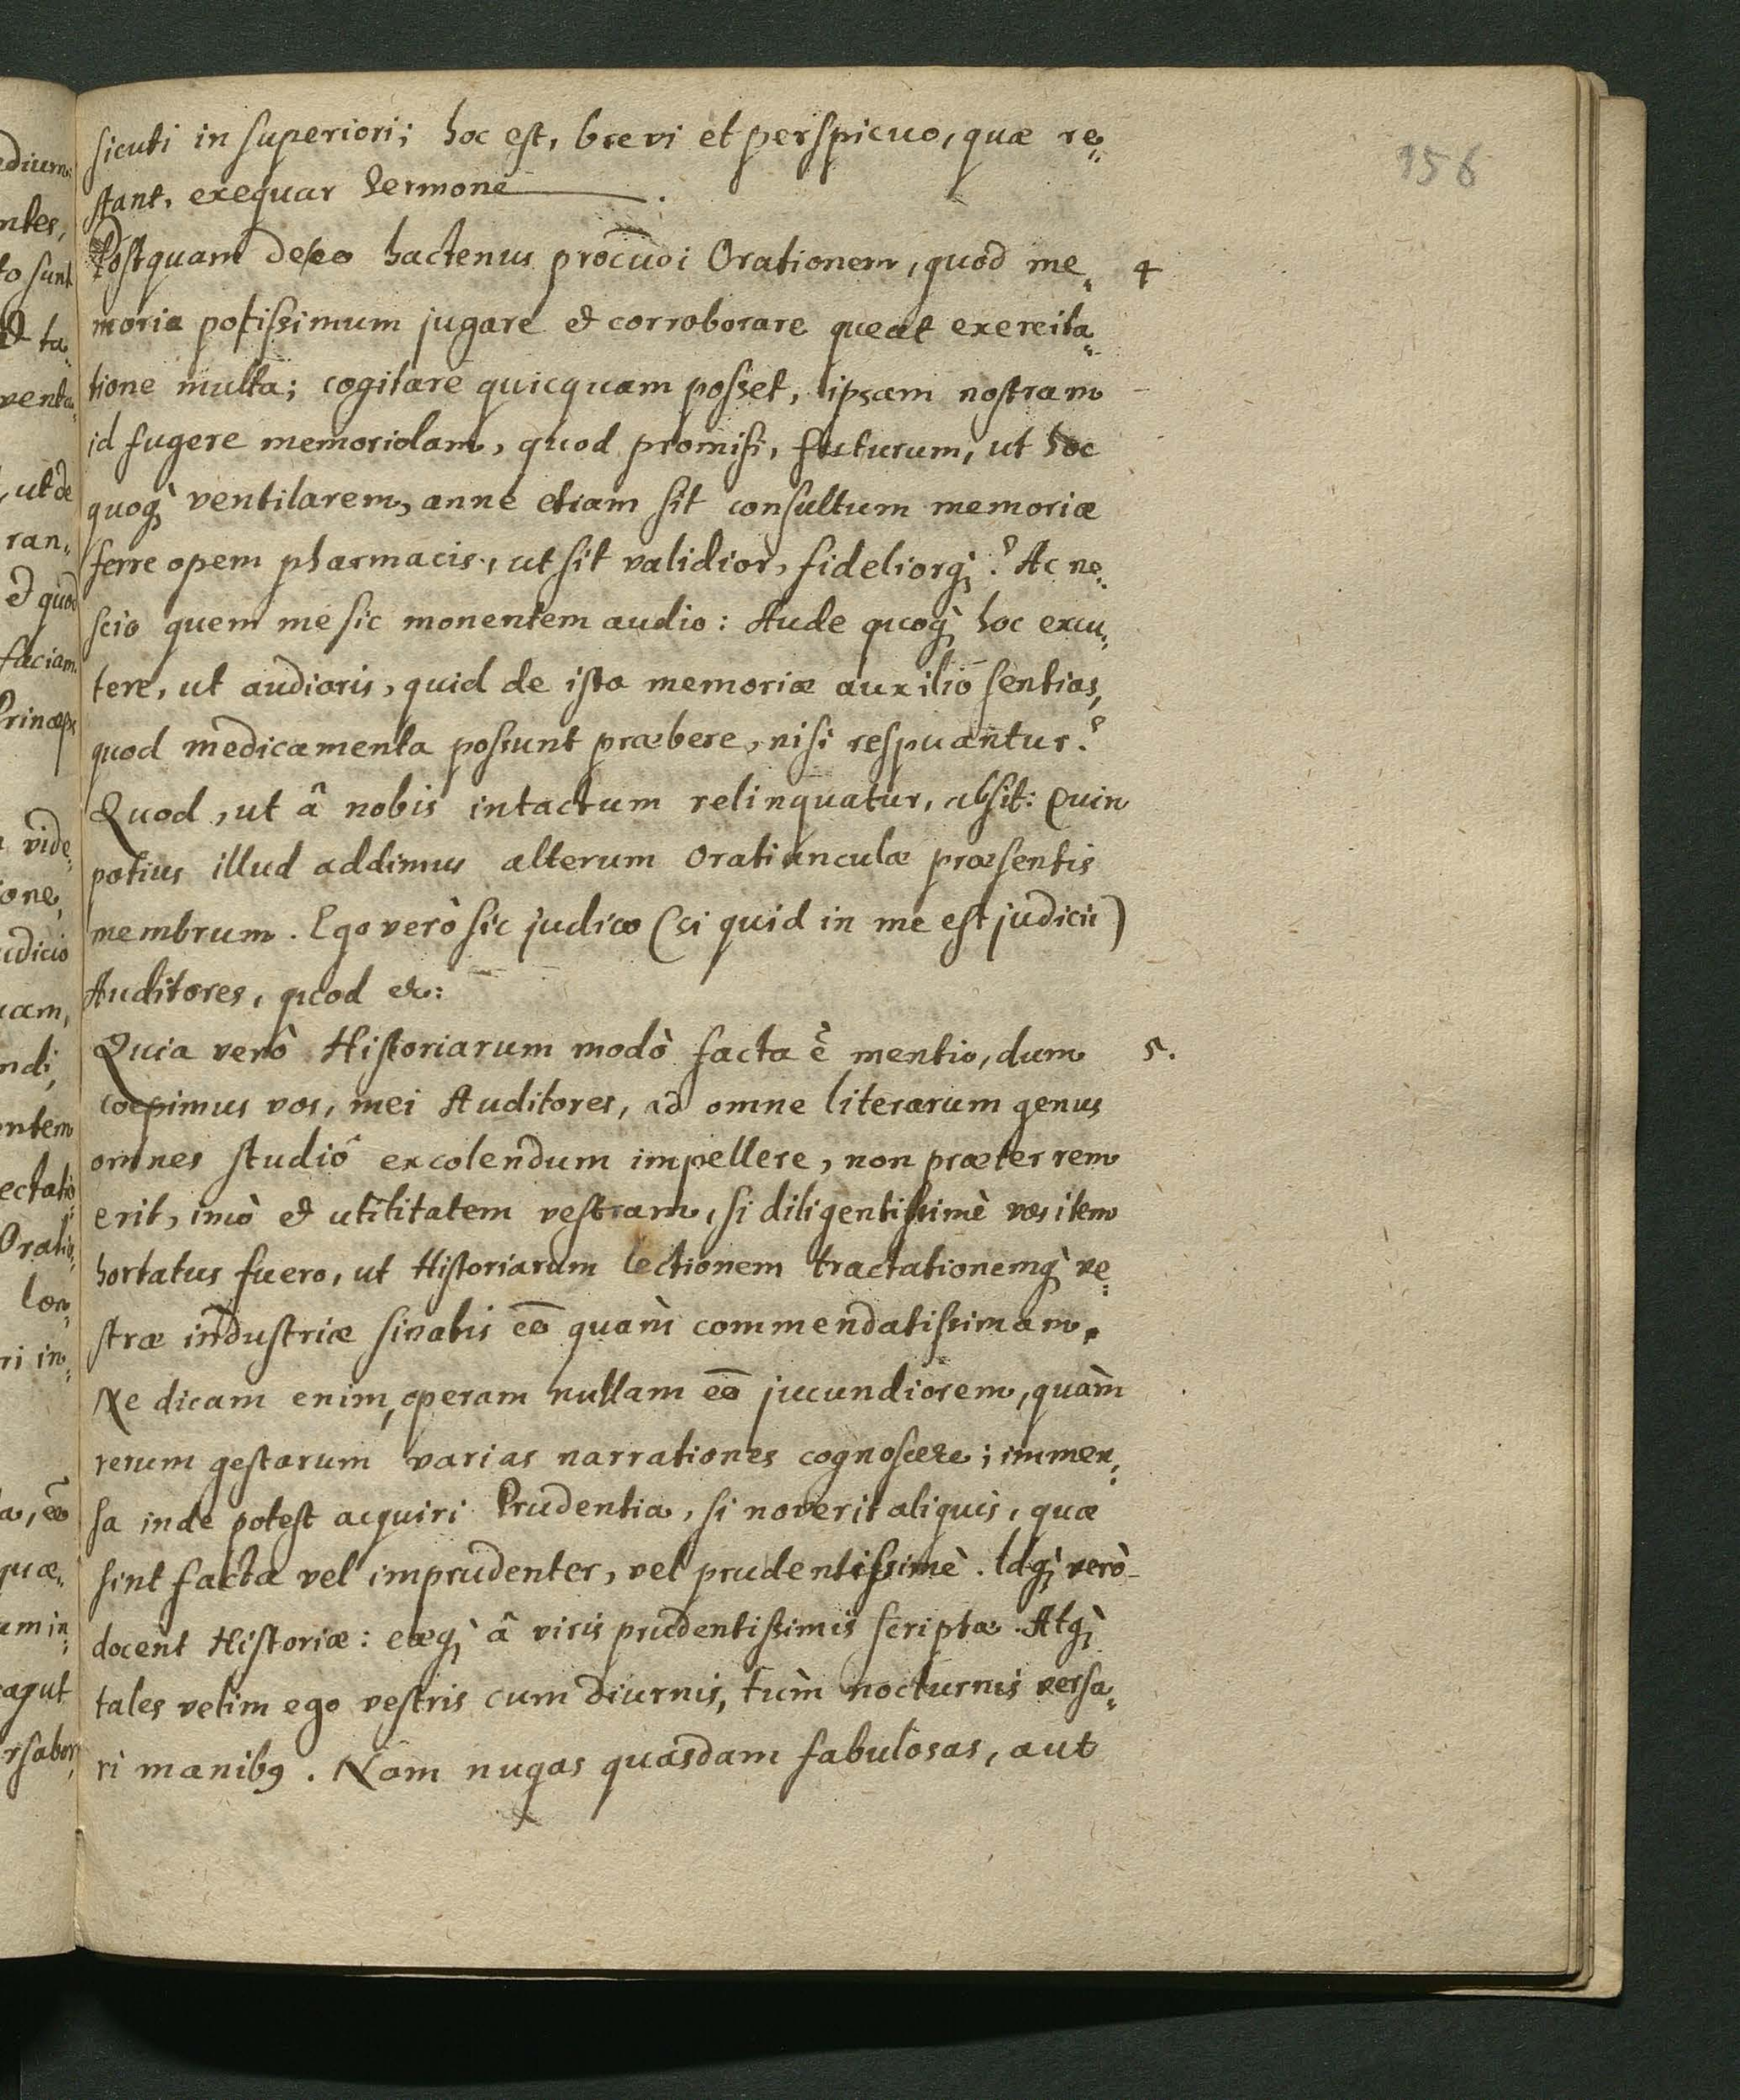 156
sicuti in superiori; hoc est, brevi et perspicuo, quæ re„
stant, exequar Sermone.
Postquam de eo hactenus procudi Orationem, quod me„ 4
moria potissimum jugare & corroborare queat exercita„
tione multa; cogitare quicquam posset, ipsam nostram
id fugere memoriolam, quod promisi, futurum, ut hoc
quoq; ventilarem, anne etiam sit consultum memoriæ
ferre opem pharmacis, ut sit validior, fideliorq;? Ac ne„
scio quem me sic monentem audio: Aude quoq; hoc excu„
tere, ut audiaris, quid de isto memoriæ auxilio sentias,
quod medicamenta possunt præbere, nisi respuantur?
Quod, ut â nobis intactum relinquatur, absit: Quin
potius illud addimus alterum Oratiunculæ præsentis
membrum. Ego verò sic judico (si quid in me est judicii)
Auditores, quod &c:
Quia verò Historiarum modò facta ē mentio, dum 5.
coepimus vos, mei Auditores, ad omne literarum genus
omnes studiô excolendum impellere, non præter rem
erit, imò & utilitatem vestram, si diligentissimè vos item
hortatus fuero, ut Historiarum lectionem tractationemq; ve„
stræ industriæ sinatis eē quàm commendatissimam.
Ne dicam enim, operam nullam eē jucundiorem, quàm
rerum gestarum varias narrationes cognoscere; immen„
sa inde potest acquiri Prudentia, si noverit aliquis, quæ
sint facta vel imprudenter, vel prudentissimè. Idq; verò
docent Historiæ: eæq; â viris prudentissimis scriptæ. Atq;
tales velim ego vestris cum diurnis, tùm nocturnis versa„
ri manibq. Nam nugas quasdam fabulosas, aut